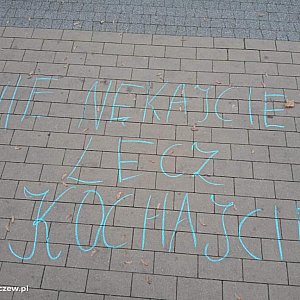 NIE NĘKAJCIE
LECZ
KOCHAJCIE